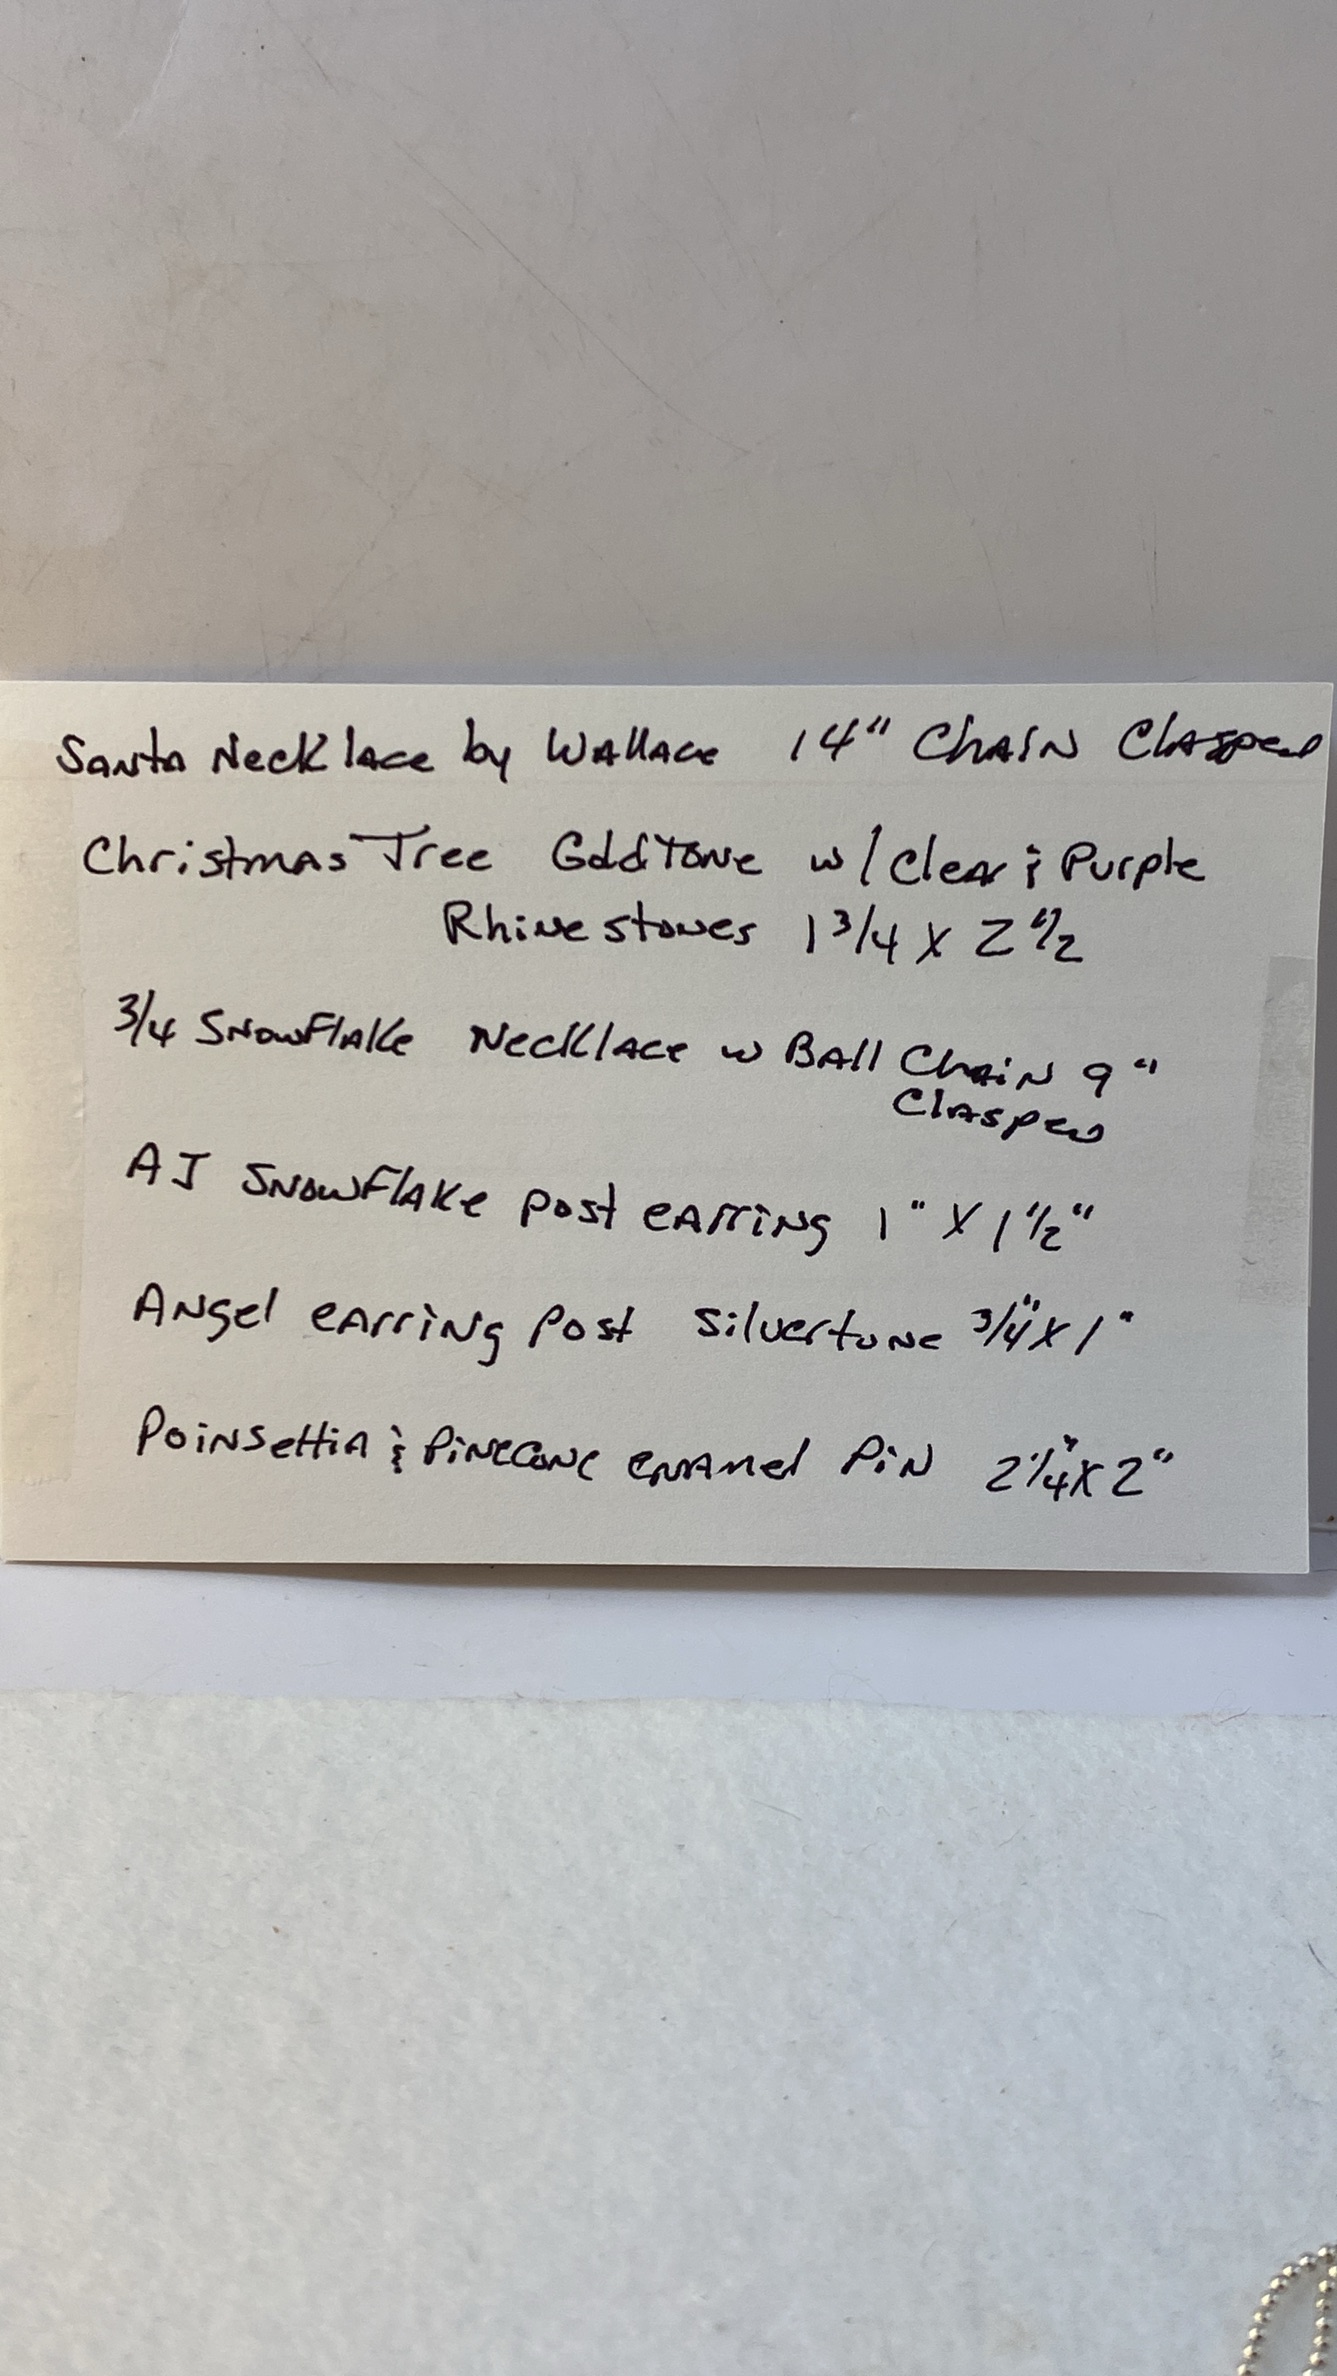 Santa Necklace by Wallace 14" Chain Clasped
Christmas Tree Goldtone w/ Clear & Purple
Rhinestones 1 3/4 X 2 1/2"
3/4 Snowflake Necklace w Ball Chain 9"
Clasped
AJ Snowflake post earring 1" X 1 1/2"
Angel earring Post Silvertone 3/4" X 1"
Poinsettia & Pinecone enamel Pin 2 1/4" X 2"